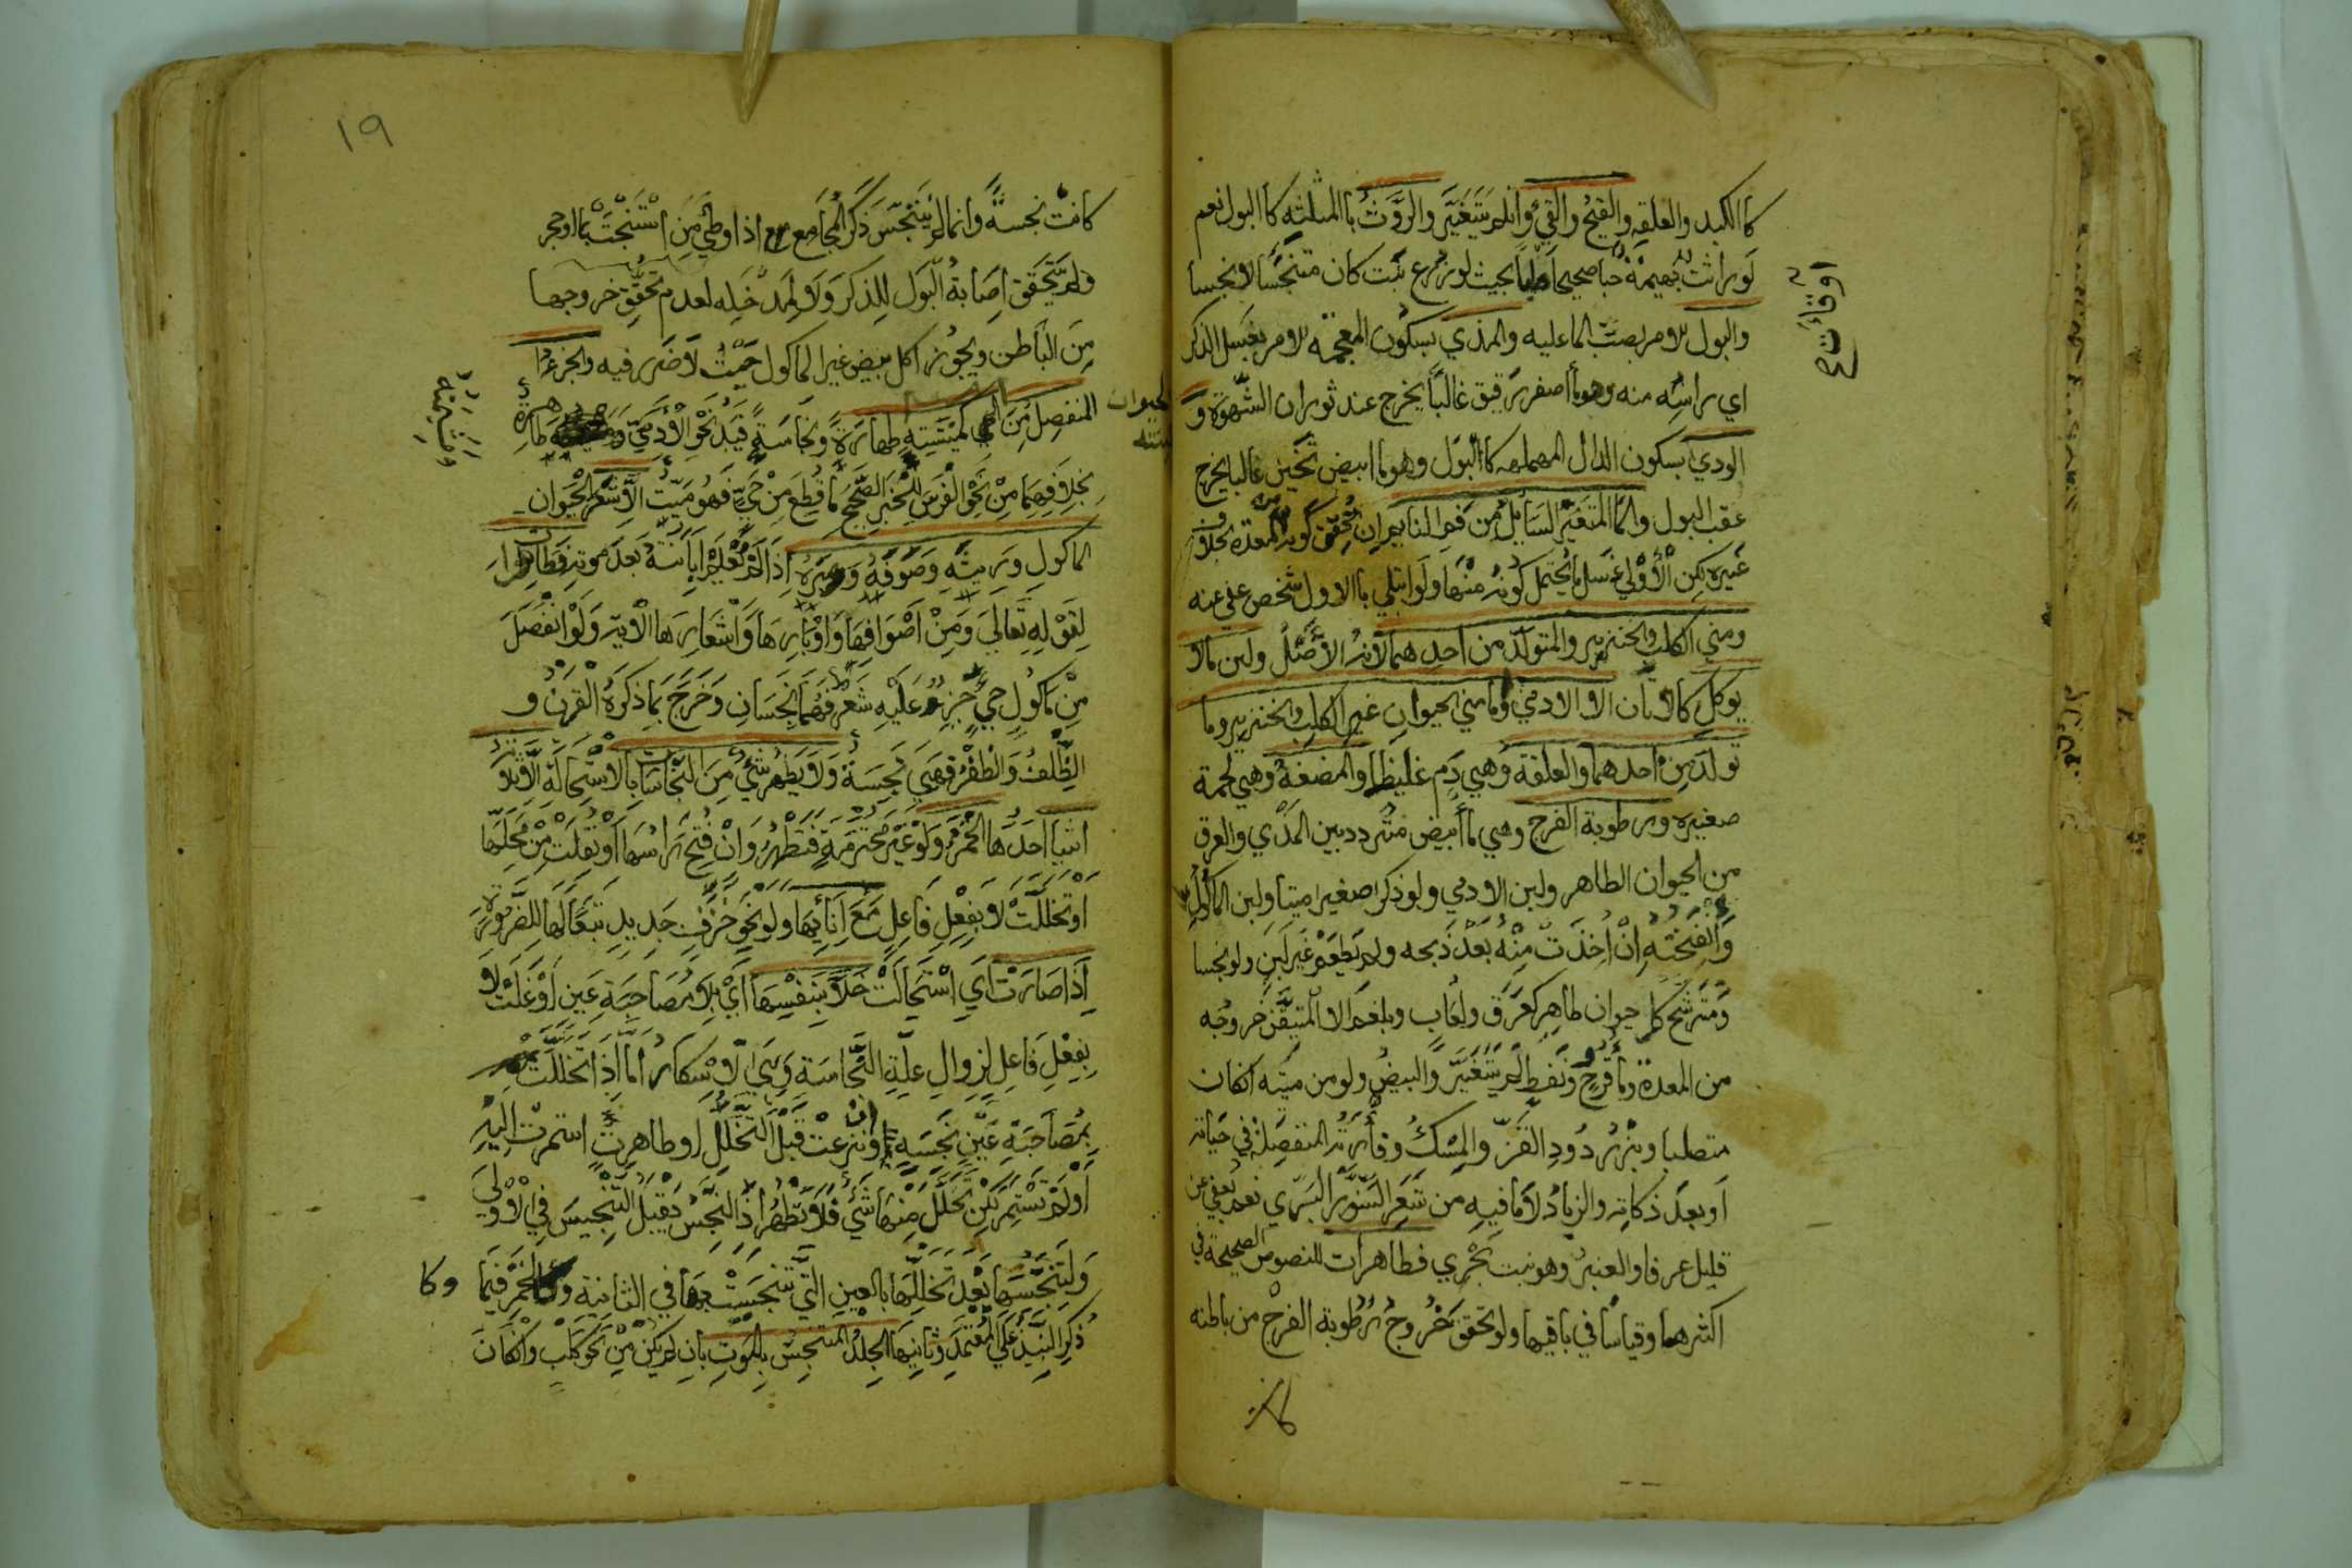 كاالكبد والعلقه والقيح والقيء وانلم يتغير والروث باالمثلثه كاالبول نعم
لوراثت بهيمة حبا صحيحا صلبا بحيث لوزرع نبت كان متنجسا لانجسا
او قائت ع
والبول للامر بصب الما عليه والمذي بسكون المعجمه للامر بغسل الذكر
اي راسه منه وهو ماأصفر رقيق غالبا يخرج عند ثوران الشهوة و
الودي بسكون الدال المهمله كاالبول وهوما ابيض ثخين غالبا يخرج
عقب البول والما المتغير السايل من فم النايم ان تحقق كونه من المعدة بخلاف
غيره لكن الأولى غسل مايحتمل كونه منها ولو ابتلي باالاول شخص عفي عنه
ومني الكلب والخنزير والمتولد من احدهما لانه الأصل ولبن مالا
يوكل كالاتان الا الادمي واما مني الحيوان غير الكلب والخنزير وما
تولد من احدهما والعلقة وهي دم غليظ والمضغة وهي لحمة
صغيره ورطوبة الفرج وهي ماأبيض متردد بين المذي والعرق
من الحيوان الطاهر ولبن الادمي ولوذكرا صغيرا ميتا ولبن الماكول
وانفحته إن أخذت منه بعد ذبحه ولم يطعم غير لبن ولونجسا
ومترشح كل حيوان طاهر كعرق ولعاب وبلغم الا المتيقن خروجه
من المعدة وماقروح ونفط لم يتغير والبيض ولومن ميته انكان
متصلبا وبزر دود القز والمسك وفأرته المنفصلة في حياته
او بعد ذكاته والزباد لامافيه من شعر السنور البري نعم يعفى عن
قليل عرفا والعنبر وهونبت بحري فطاهرات للنصوص الصحيحة في
اكثرهما وقياسا في باقيها ولوتحقق خروج رطوبة الفرج من باطنه
كانت
١٩
كانت نجسة وانمالم يتنجس ذكر المجامع اذا وطئ من استنجت بما اوحجر
ولم يتحقق اصابة البول للذكر ولا لمدخله لعدم تحقق خروجها
من الباطن ويجوز اكل بيض غير الماكول حيث لاضرر فيه والجزء
المنفصل من الحيوان كميتته طهارة ونجاسة فيد نحو الأدمي طاهرة
ومشيمته
بخلافهما من نحو الفرس للخبر الصحيح ماقطع من حي فهو ميت الاشعر الحيوان
الماكول وريشه وصوفه ووبره اذالم تعلم ابانته بعد موته فطاهرات
لقوله تعالى ومن اصوافها واوبارها واشعارها الاية ولوانفصل
من ماكول حي جزء عليه شعر فهما نجسان وخرج بماذكره القرن و
الظلف والظفر فهي نجسة ولايطهر شيء من النجاسات بالاستحالة الاثلاثة
اشيا احدها الخمر ولوغير محترمة فتطهر وان فتح راسها أونقلت من محلها
اوتخللت لابفعل فاعل مع انائها ولو نحو خزف جديد تبعا لها للضرورة
اذا صارت اي استحالت خلا بنفسها اي بلا مصاحبة عين أوغلت لا
بفعل فاعل لزوال علة النجاسة وهي الاسكار اما اذاتخللت
بمصاحبة عين نجسه وان نزعت قبل التخلل او طاهرة استمرت اليه
أولم تستمر لكن تخلل منها شيء فلاتطهر اذ النجس يقبل التنجيس في الأولى
ولتنجسها بعد تخللها بالعين التي تنجست بها في الثانية وكالخمر فيما
وكا
ذكر النبيذ على المعتمد وثانيها الجلد المتنجس بالموت بان لم يكن من نحو كلب وانكان